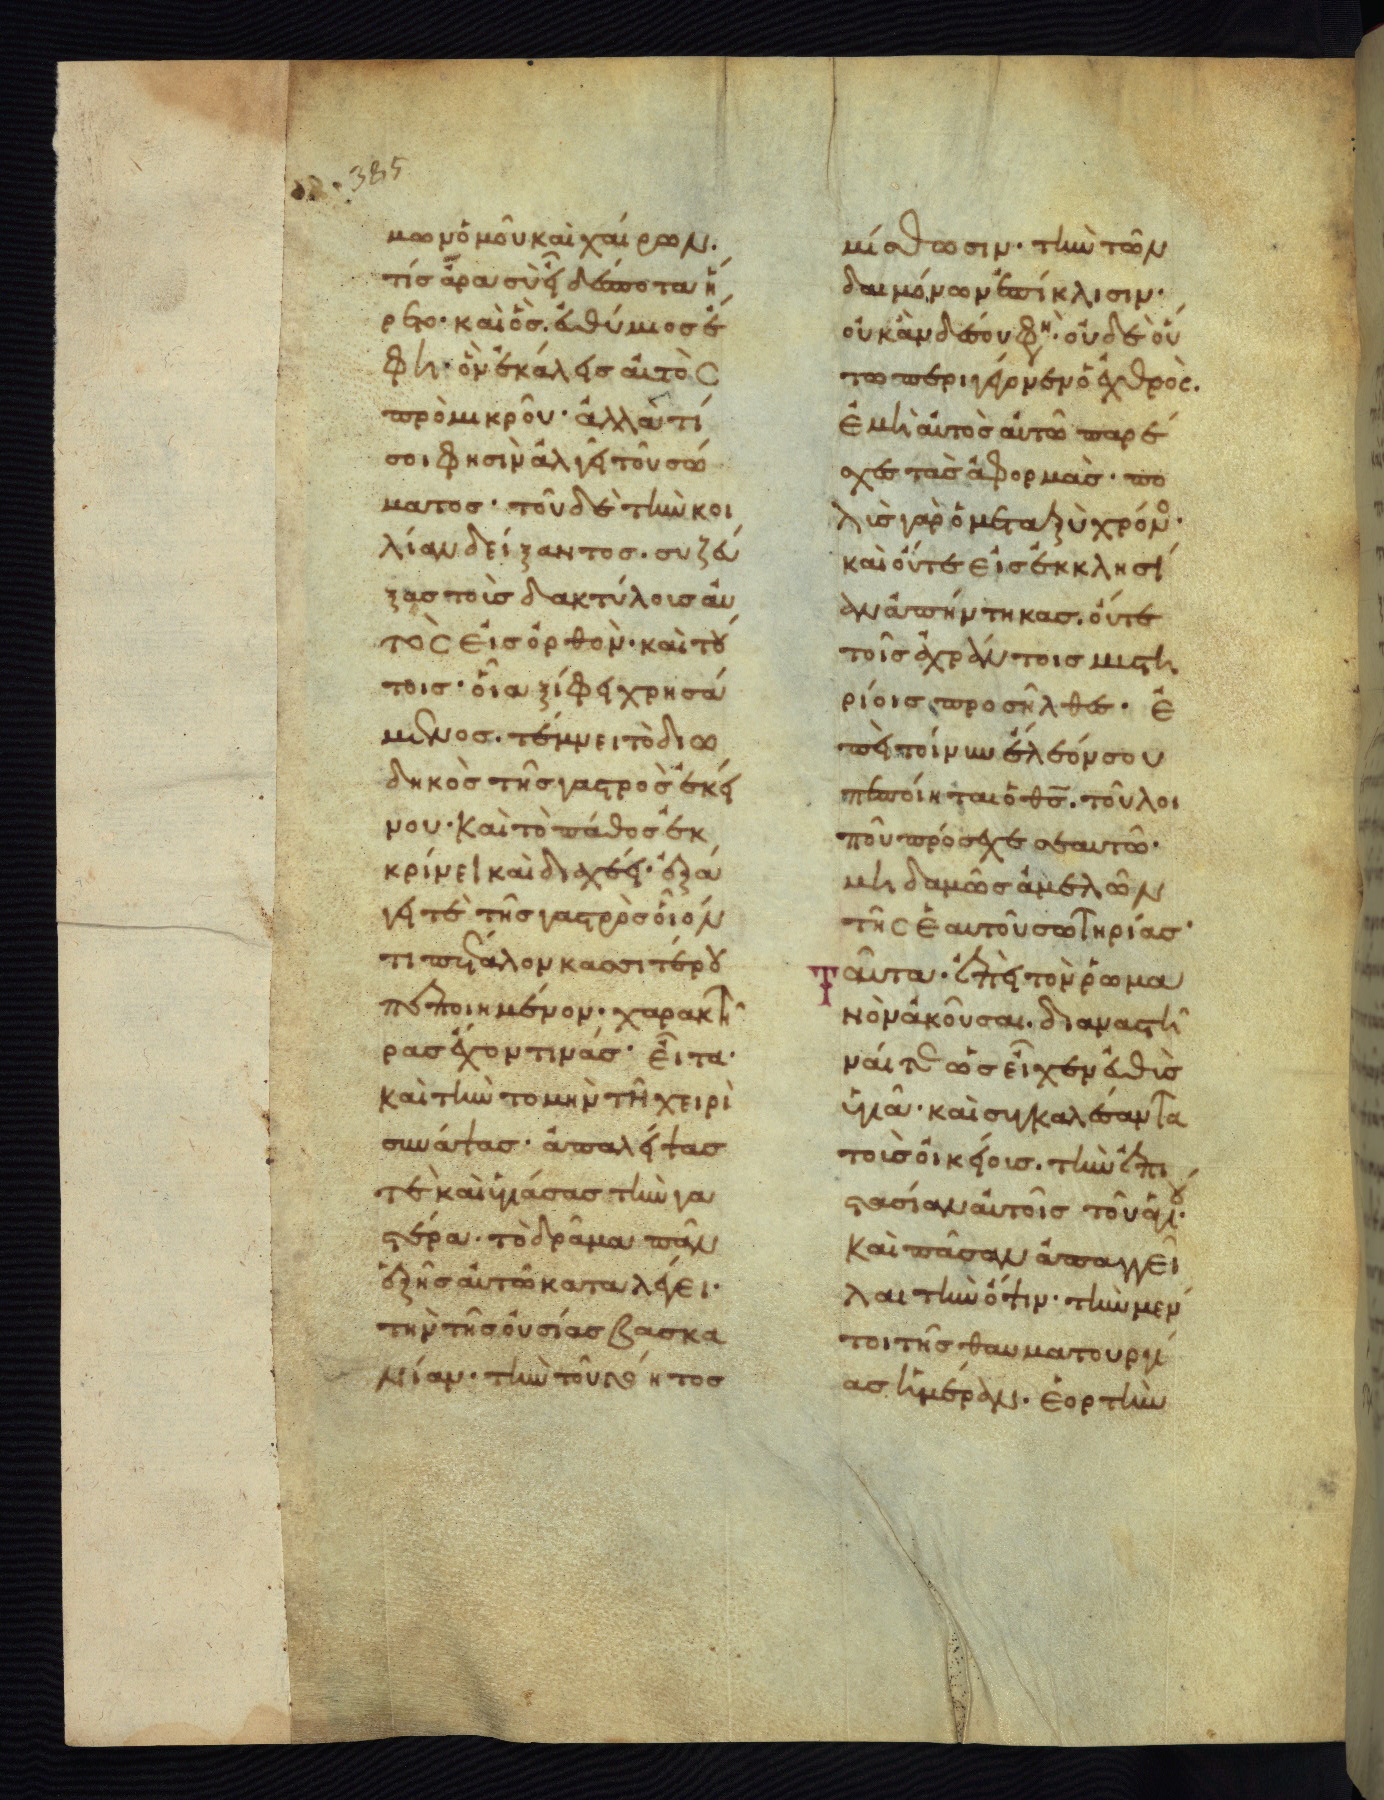 385
μων ὁμοῦ καὶ χαίρων.
τίς ἄρα σὺ εἶ δέσποτα ἤ
ρετο· καὶ ὃς. εὐθύμιος ἔ
φη· ὃν ἐκάλεις αὐτὸς
πρὸ μικροῦ· ἀλλὰ τί
σοι φησὶν ἀλγεῖ τοῦ σώ
ματος· τοῦ δὲ τὴν κοι
λίαν δείξαντος. συζεύ
ξας τοὺς δακτύλους αὐ
τὸς εἰς ὀρθὸν· καὶ τού
τοις· οἷα ξίφει χρησά
μενος. τέμνει τὸ διω
δηκὸς τῆς γαστρὸς ἐκεί
νου· καὶ τὸ πάθος ἐκ
κρίνει καὶ διαχέει· ἐξά
γει τὲ τῆς γαστρὸς οἷόν
τι πέταλον κασσιτέρου
πεποιημένον· χαρακτῆ
ρας ἔχον τινάς· εἶτα·
καὶ τὴν τομὴν τῇ χειρὶ
συνάψας· ἀπαλείψας
τὲ καὶ ὑγιάσας τὴν γα
στέρα· τὸ δρᾶμα πᾶν
ἑξῆς αὐτῷ καταλέγει·
τὴν τῆς οὐσίας βασκα
νίαν· τὴν τοῦ γόητος
μίσθωσιν· τὴν τῶν
δαιμόνων ἐπίκλησιν·
οὐκ ἂν δέ σου φη. οὐδὲ οὕ
τω περιγέγονεν ὁ ἐχθρὸς.
εἰ μὴ αὐτὸς αὐτῶ παρέ
σχες τὰς ἀφορμὰς· πο
λὺς γὰρ ὁ μεταξὺ χρόνος·
καὶ οὔτε εἰς ἐκκλησί
αν ἀπήντηκας. οὔτε
τοῖς ἀχράντοις μυστη
ρίοις προσῆλθες· ἐ
πεὶ τοίνυν ἔλεόν σου
πεποίηται ὁ θς. τοῦ λοι
ποῦ πρόσεχε σεαυτῶ·
μηδαμῶς ἀμελῶν
τῆς ἑαυτοῦ σωτηρίας·
Ταῦτα· ἐπεὶ τὸν ῥωμα
νὸν ἀκοῦσαι. διαναστῆ
ναί τε ὡς εἶχεν εὐθὺς
ὑγιᾶ· καὶ συγκαλέσαντα
τοὺς οἰκείους. τὴν ἐπι
στασίαν αὐτοῖς τοῦ ἁγίου
καὶ πᾶσαν ἀπαγγεῖ
λαι τὴν ὄψιν· τὴν μέν
τοι τῆς θαυματουργί
ας ἡμέραν. ἑορτὴν